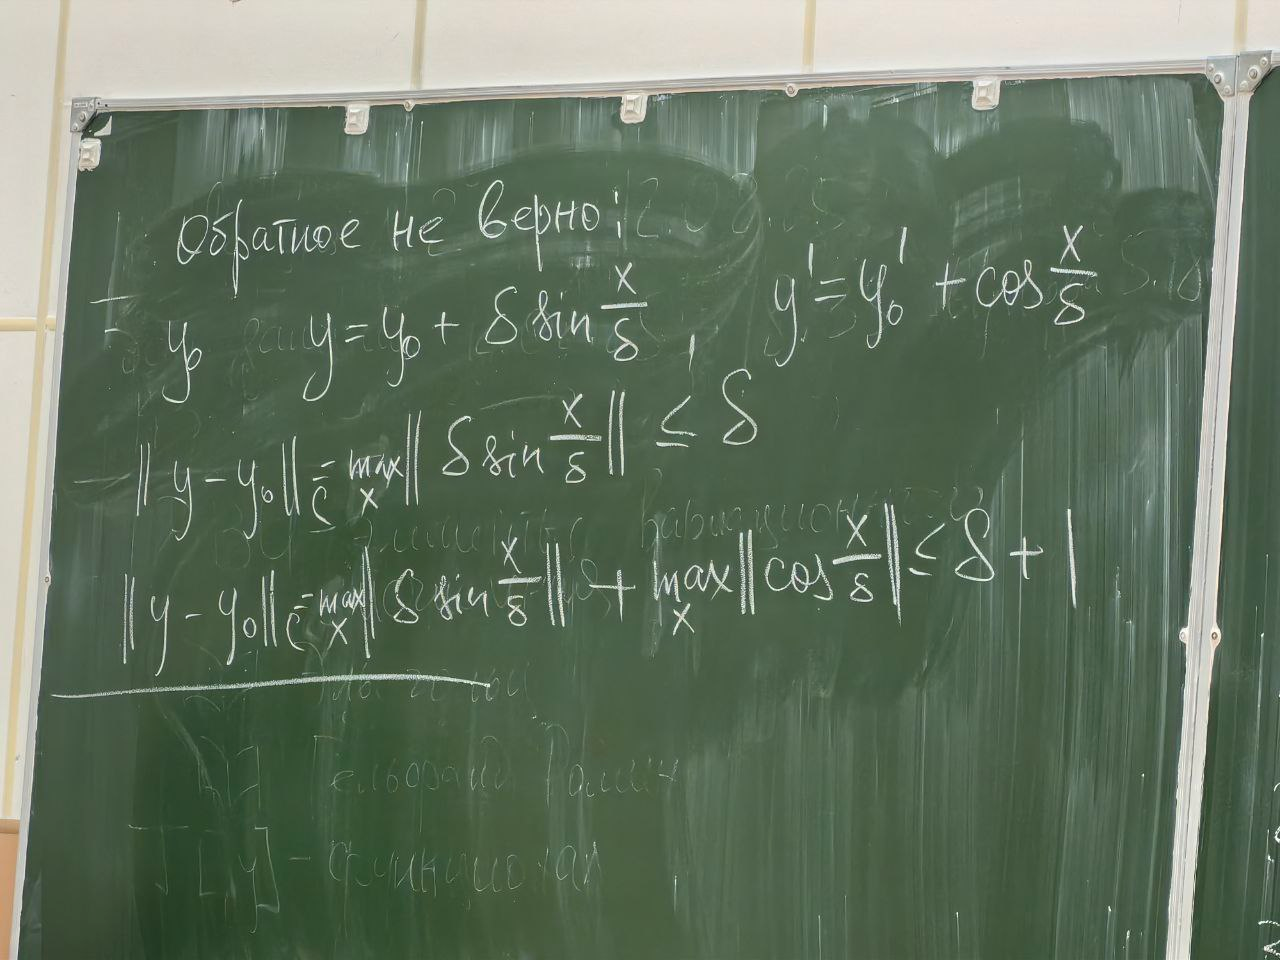 Обратное не верно:
y₀ y = y₀ + δ sin x/δ, y' = y₀' + cos x/δ
‖y - y₀‖_C = max_x ‖δ sin x/δ‖ ≤ δ
‖y - y₀‖_C' = max_x ‖δ sin x/δ‖ + max_x ‖cos x/δ‖ ≤ δ + 1
Гельфанд Фомин
J[y] - функционал